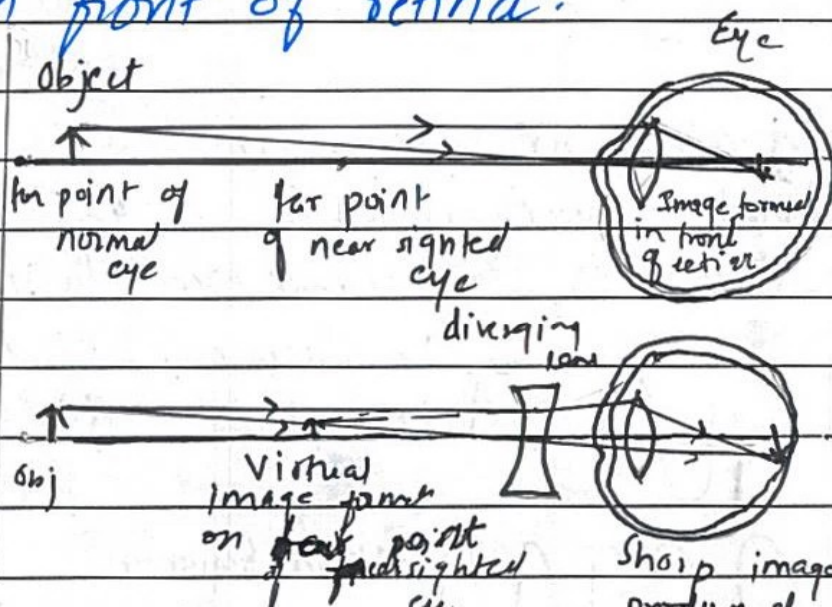 front of retina.
Eye
Object
far point of
normal
eye
far point
of near sighted
eye
Image formed
in front
of retina
diverging
lens
Obj
Virtual
image format
on far point
of nearsighted
Sharp image